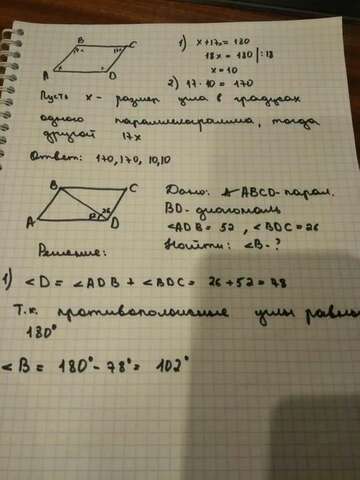 B C
A D
x 17x x 17x
1) x+17x = 180
18x = 180 | :18
x = 10
2) 17 · 10 = 170
Пусть x - размер угла в градусах
одного параллелограмма, тогда
другой 17x
Ответ: 170, 170, 10, 10
B C
A D
52 26
Дано: ABCD - парал.
BD - диагональ
∠ADB = 52, ∠BDC = 26
Найти: ∠B - ?
Решение:
1) ∠D = ∠ADB + ∠BDC = 26 + 52 = 78
Т.к. противоположные углы равны
180°
∠B = 180° - 78° = 102°